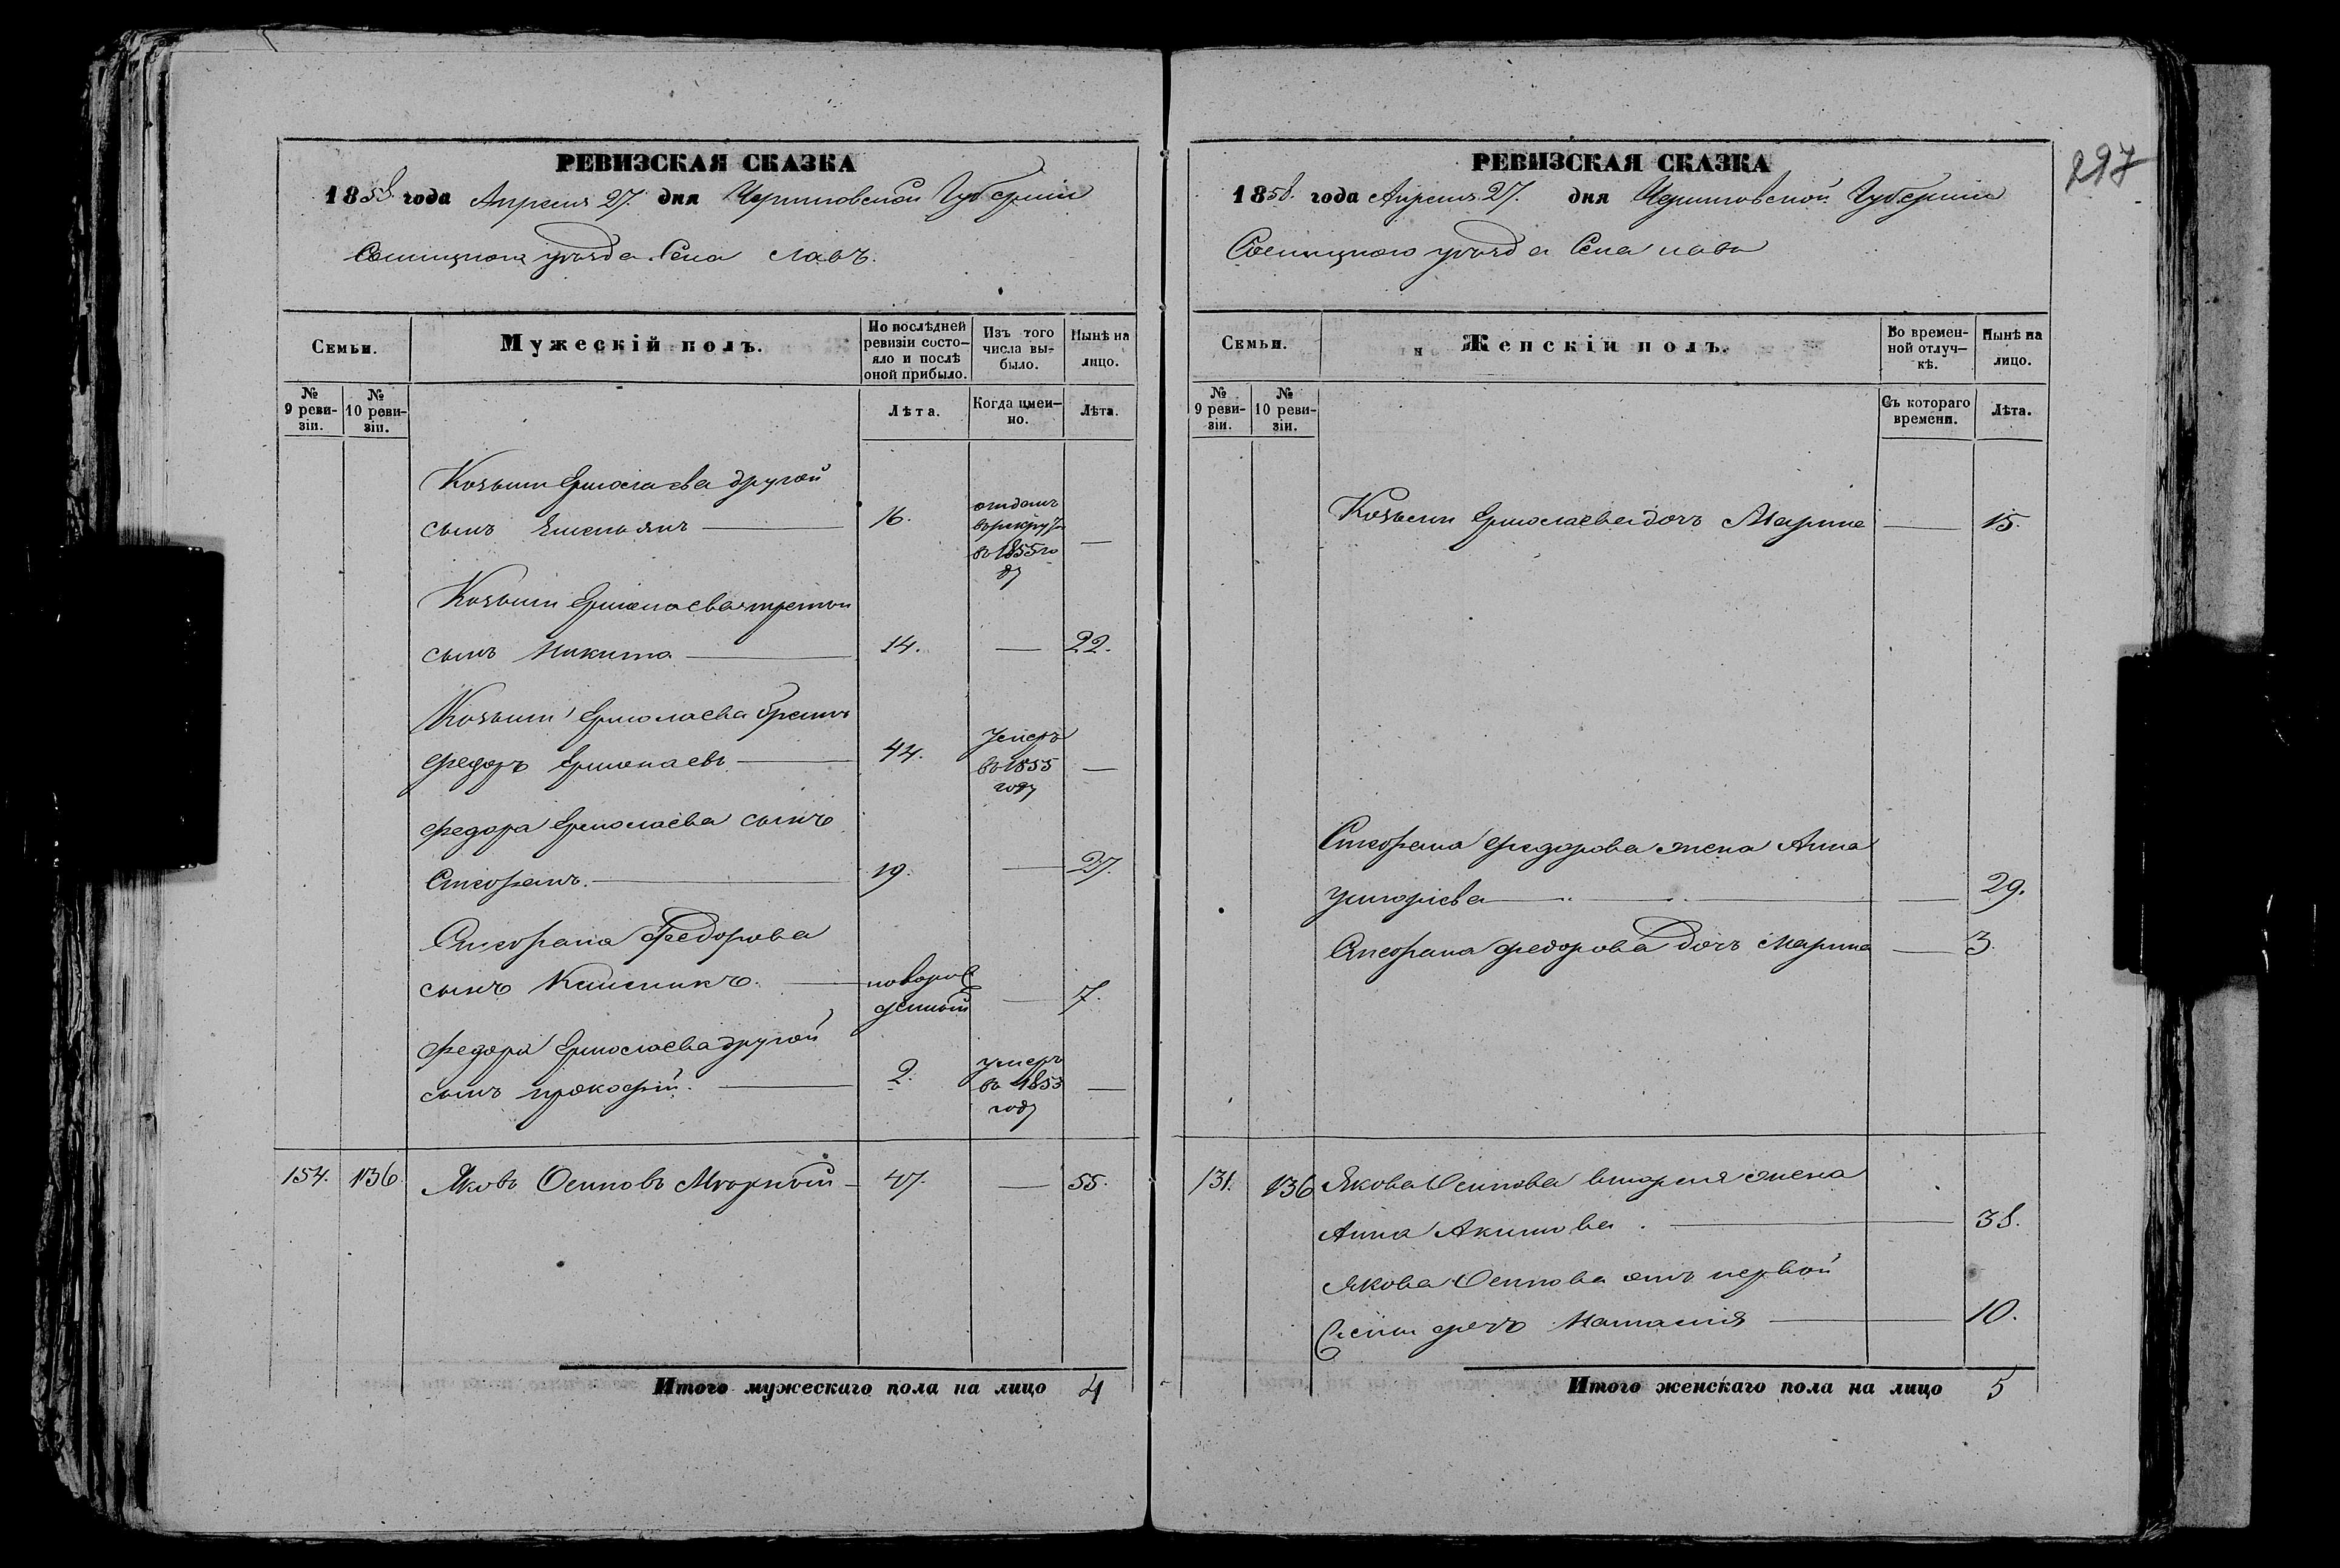 РЕВИЗСКАЯ СКАЗКА
1858 года Апреля 27. дня Черниговской Губернии
Сосницкого уезда Села Лавъ.
Семьи.
Мужескій полъ.
По послѣдней
ревизіи состо-
яло и послѣ
оной прибыло.
Изъ того
числа вы-
было.
Нынѣ на
лицо.
№
9 реви-
зіи.
№
10 реви-
зіи.
Лѣта.
Когда имен-
но.
Лѣта.
Козьми Ермолаева другой
сынъ Емельянъ 16. отданъ
в рекруты
во 1855 го
ду —
Козьми Ермолаева третий
сынъ Никита 14. — 22.
Козьми Ермолаева братъ
Федоръ Ермолаевъ 44. Умеръ
во 1855
году —
Федора Ермолаева сынъ
Стефанъ. 19. — 27.
Стефана Федорова
сынъ Климъ новорож
денный — 7.
Федора Ермолаева другой
сынъ Прокофій. 2. умеръ
во 1853
году —
154. 136 Яковъ Осиповъ 47. — 55.
Итого мужескаго пола на лицо 4
297
РЕВИЗСКАЯ СКАЗКА
1858. года Апреля 27. дня Черниговской Губернии
Сосницкого уезда Села Лавъ
Семьи.
Женскій полъ.
Во времен-
ной отлуч-
кѣ.
Нынѣ на
лицо.
№
9 реви-
зіи.
№
10 реви-
зіи.
Съ котораго
времени.
Лѣта.
Козьми Ермолаева дочь Марина — 15.
Стефана Федорова жена Анна
Григорьева — 29.
Стефана Федорова дочь Марина — 3.
131. 136 Якова Осипова вторая жена
Анна Акимова. 38.
Якова Осипова отъ первой
жены дочь Наталия 10.
Итого женскаго пола на лицо 5